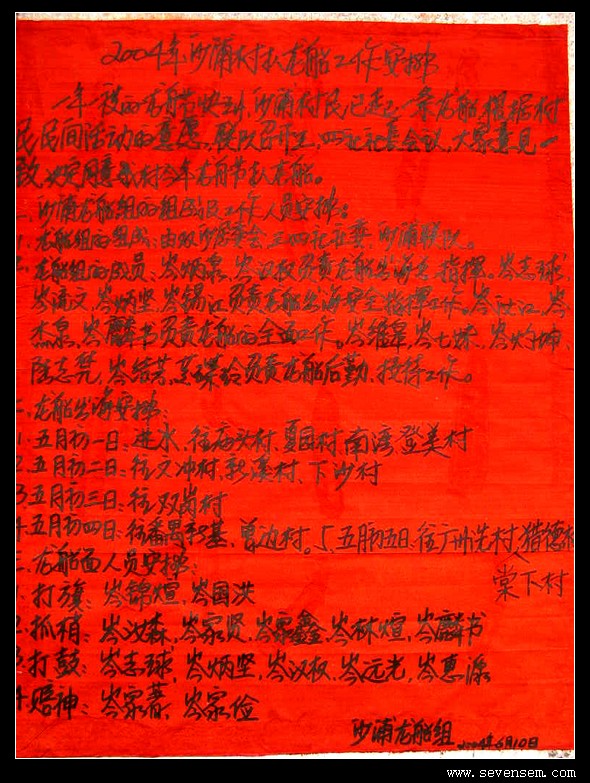 2004年沙浦村扒龙船工作安排
一年一度的龙舟节快到,沙浦村民已起一条龙船,根据村
民民间活动的意愿,联队召开 会议,大家意见一
致决定同意我村今年龙舟节扒龙船。
一、沙浦龙船组的组成及工作人员安排:
1、龙船组的组成:由双沙 沙浦联队。
2、龙船组的成员:岑炳泉、岑汉权负责龙船出海总指挥。岑志球、
岑 岑炳坚、岑锡江负责龙船出海安全指挥工作。岑汝江、岑
杰泉、岑麟书负责龙船的全面工作。岑维 岑七妹、岑灼坤、
陆志 岑结 负责龙船后勤、接待工作。
二、龙船出海安排:
1.五月初一日:进水、往庙头村、夏园村、南湾登美村
2.五月初二日:往 冲村、新溪村、下沙村
3.五月初三日:往双岗村
4.五月初四日:往番禺新基、曾边村。5、五月初五日:往广州冼村、猎德村
棠下村
三、龙船面人员安排:
1.打旗:岑锦煊、岑国洪
2.抓梢:岑汝森、岑家贤、岑家鑫、岑林煊、岑麟书
3.打鼓:岑志球、岑炳坚、岑汉权、岑远光、岑惠
4.赔神:岑家著、岑家俭
沙浦龙船组 2004年6月10日
www.sevensem.com